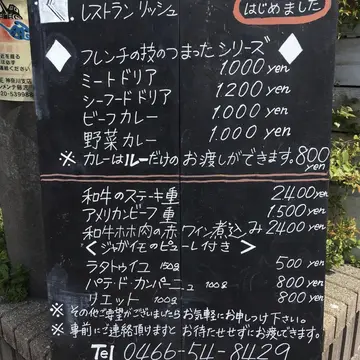 レストラン リッシュ
はじめました
フレンチの技のつまったシリーズ
ミートドリア 1.000 yen
シーフードドリア 1200 yen
ビーフカレー 1.000 yen
野菜カレー 1.000 yen
※ カレーはルーだけのお渡しができます。800 yen
和牛のステーキ重 2400 yen
アメリカンビーフ重 1500 yen
和牛ホホ肉の赤ワイン煮込み 2400 yen
〈ジャガイモのピューレ付き〉
ラタトゥイユ 150g 500 yen
パテ・ド・カンパーニュ 100g 800 yen
リエット 100g 800 yen
※ その他ご希望がございましたらお気軽にお申しつけ下さい。
※ 事前にご連絡頂りますとお待たせせずにお渡しできます。
Tel 0466-54-8429